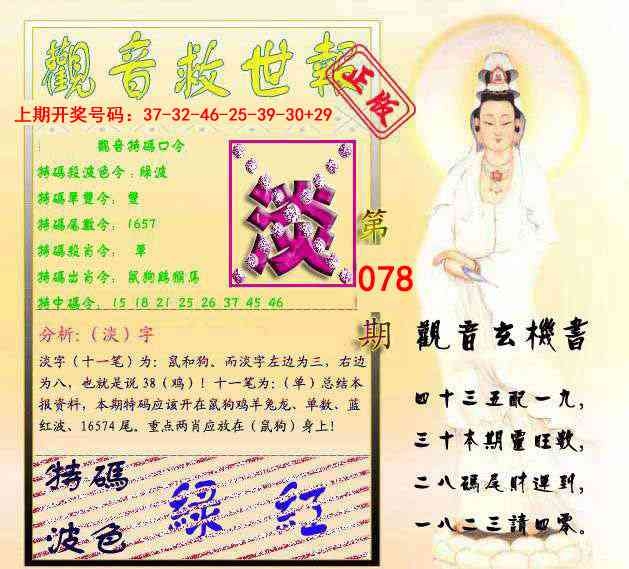 觀音救世報
正版
上期开奖号码：37-32-46-25-39-30+29
觀音特碼口令
特碼殺波色令：綠波
特碼單雙令： 雙
特碼尾數令： 1657
特碼殺肖令： 單
特碼出肖令： 鼠狗鷄猴馬
特中碼令： 15 18 21 25 26 37 45 46
淡
第
078
期
分析：（淡）字
淡字（十一笔）为：鼠和狗、而淡字左边为三，右边
为八，也就是说 38（鸡）！十一笔为:（单）总结本
报资料，本期特码应该开在鼠狗鸡羊兔龙、单数、蓝
红波、16574 尾。重点两肖应放在（鼠狗）身上！
特碼
波色
綠 紅
觀音玄機書
四十三五配一九，
三十本期靈旺數，
二八碼尾財運到，
一八二三請四零。